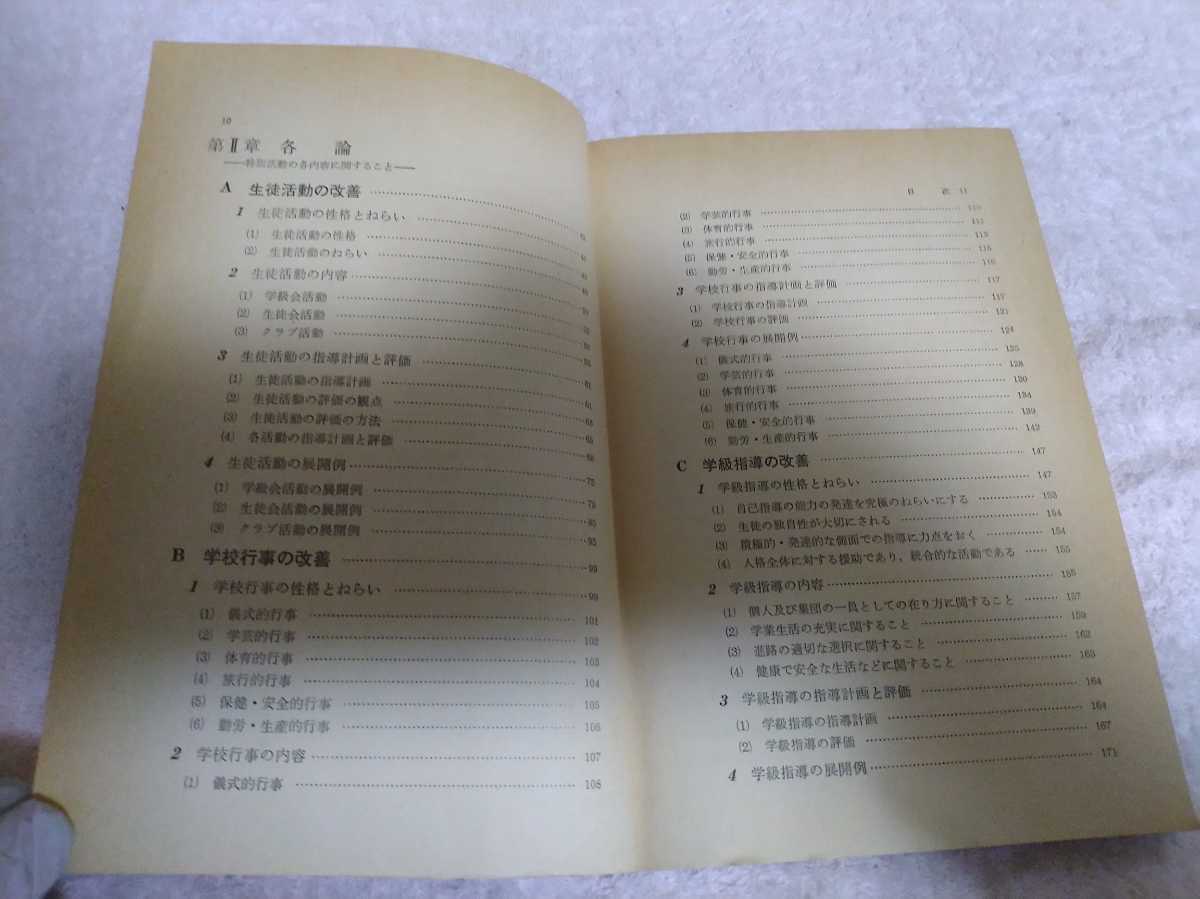 10
第Ⅱ章 各 論
――特別活動の各内容に関すること――
A 生徒活動の改善
1 生徒活動の性格とねらい
(1) 生徒活動の性格
(2) 生徒活動のねらい
2 生徒活動の内容
(1) 学級会活動
(2) 生徒会活動
(3) クラブ活動
3 生徒活動の指導計画と評価
(1) 生徒活動の指導計画 61
(2) 生徒活動の評価の観点 61
(3) 生徒活動の評価の方法
(4) 各活動の指導計画と評価
4 生徒活動の展開例
(1) 学級会活動の展開例
(2) 生徒会活動の展開例
(3) クラブ活動の展開例 95
B 学校行事の改善 99
1 学校行事の性格とねらい 99
(1) 儀式的行事 101
(2) 学芸的行事 102
(3) 体育的行事 103
(4) 旅行的行事 104
(5) 保健・安全的行事 105
(6) 勤労・生産的行事 106
2 学校行事の内容 107
(1) 儀式的行事 108
目 次 11
(2) 学芸的行事
(3) 体育的行事 112
(4) 旅行的行事 113
(5) 保健・安全的行事 115
(6) 勤労・生産的行事 116
3 学校行事の指導計画と評価 117
(1) 学校行事の指導計画 117
(2) 学校行事の評価 121
4 学校行事の展開例 124
(1) 儀式的行事 125
(2) 学芸的行事 128
(3) 体育的行事 130
(4) 旅行的行事 134
(5) 保健・安全的行事 139
(6) 勤労・生産的行事 142
C 学級指導の改善 147
1 学級指導の性格とねらい 147
(1) 自己指導の能力の発達を究極のねらいにする 153
(2) 生徒の独自性が大切にされる 154
(3) 積極的・発達的な側面での指導に力点をおく 154
(4) 人格全体に対する援助であり、統合的な活動である 155
2 学級指導の内容 155
(1) 個人及び集団の一員としての在り方に関すること 157
(2) 学業生活の充実に関すること 159
(3) 進路の適切な選択に関すること 162
(4) 健康で安全な生活などに関すること 163
3 学級指導の指導計画と評価 164
(1) 学級指導の指導計画 164
(2) 学級指導の評価 167
4 学級指導の展開例 171